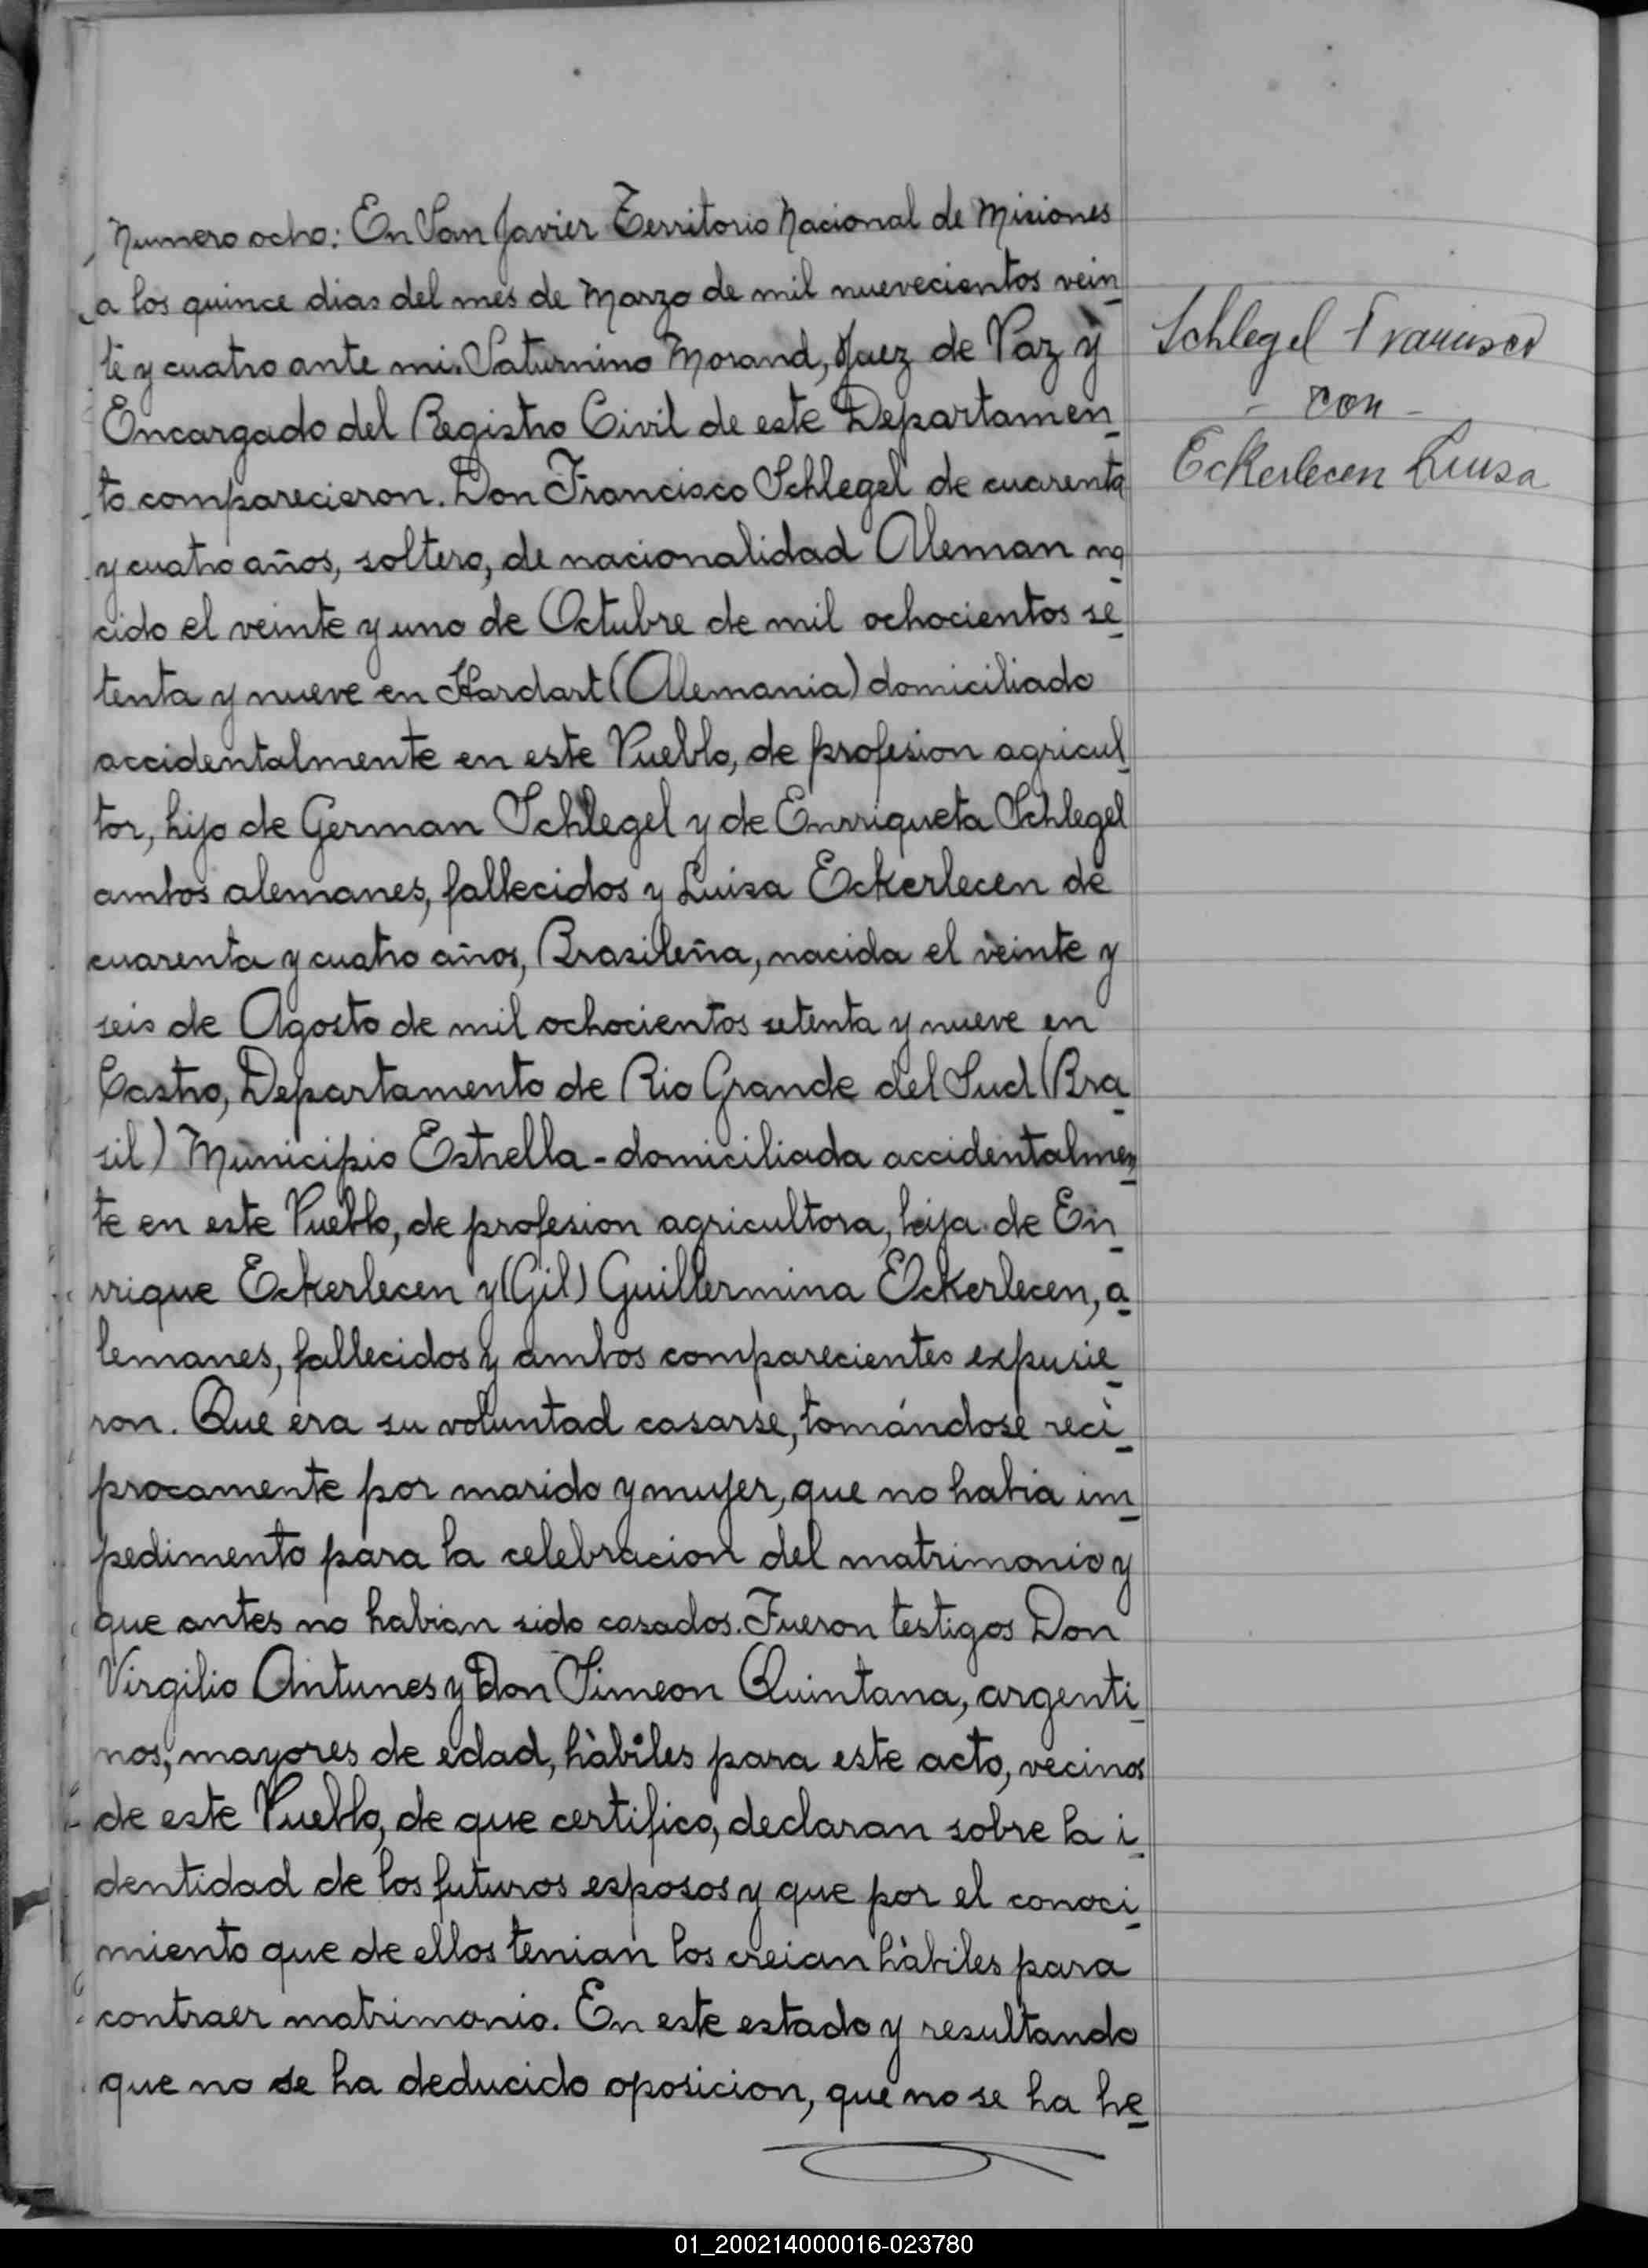 Numero ocho: En San Javier Territorio Nacional de Misiones
a los quince dias del mes de Marzo de mil nuevecientos vein
te y cuatro ante mi. Saturnino Morand, Juez de Paz y
Encargado del Registro Civil de este Departamen
to comparecieron. Don Francisco Schlegel de cuarenta
y cuatro años, soltero, de nacionalidad Aleman na
cido el veinte y uno de Octubre de mil ochocientos se
tenta y nueve en Hardart (Alemania) domiciliado
accidentalmente en este Pueblo, de profesion agricul
tor, hijo de German Schlegel y de Enrriqueta Schlegel
ambos alemanes, fallecidos y Luisa Eckerlecen de
cuarenta y cuatro años, Brasileña, nacida el veinte y
seis de Agosto de mil ochocientos setenta y nueve en
Castro, Departamento de Rio Grande del Sud (Bra
sil) Municipio Estrella - domiciliada accidentalmen
te en este Pueblo, de profesion agricultora, hija de En
rrique Eckerlecen y (Gil) Guillermina Eckerlecen, a
lemanes, fallecidos y ambos comparecientes expusie
ron. Que era su voluntad casarse, tomándose reci
procamente por marido y mujer, que no habia im
pedimento para la celebracion del matrimonio y
que antes no habian sido casados. Fueron testigos Don
Virgilio Antunes y Don Simeon Quintana, argenti
nos, mayores de edad, hàbiles para este acto, vecinos
de este Pueblo, de que certifico, declaran sobre la i
dentidad de los futuros esposos y que por el conoci
miento que de ellos tenian los creian hàbiles para
contraer matrimonio. En este estado y resultando
que no se ha deducido oposicion, que no se ha he
Schlegel Francisco
- con -
Eckerlecen Luisa
01_200214000016-023780